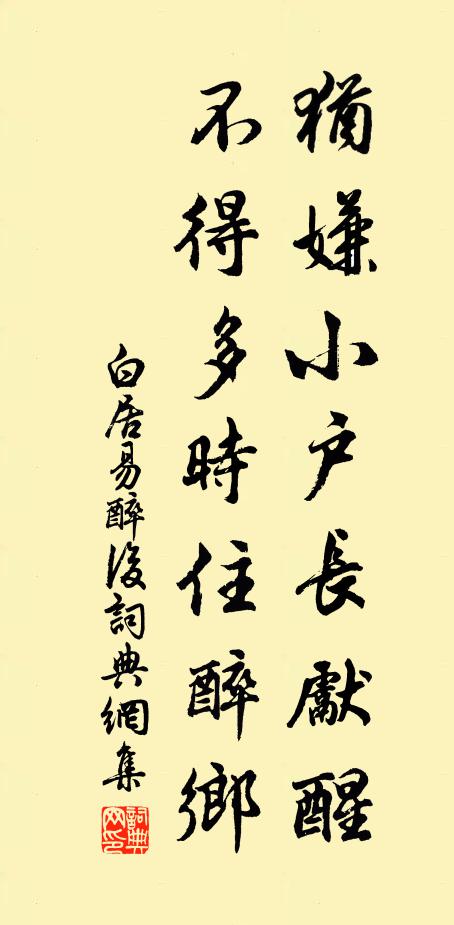 猶嫌小户長獻醒
不得多時住醉鄉
白居易醉後詞典網集
詞典
网印